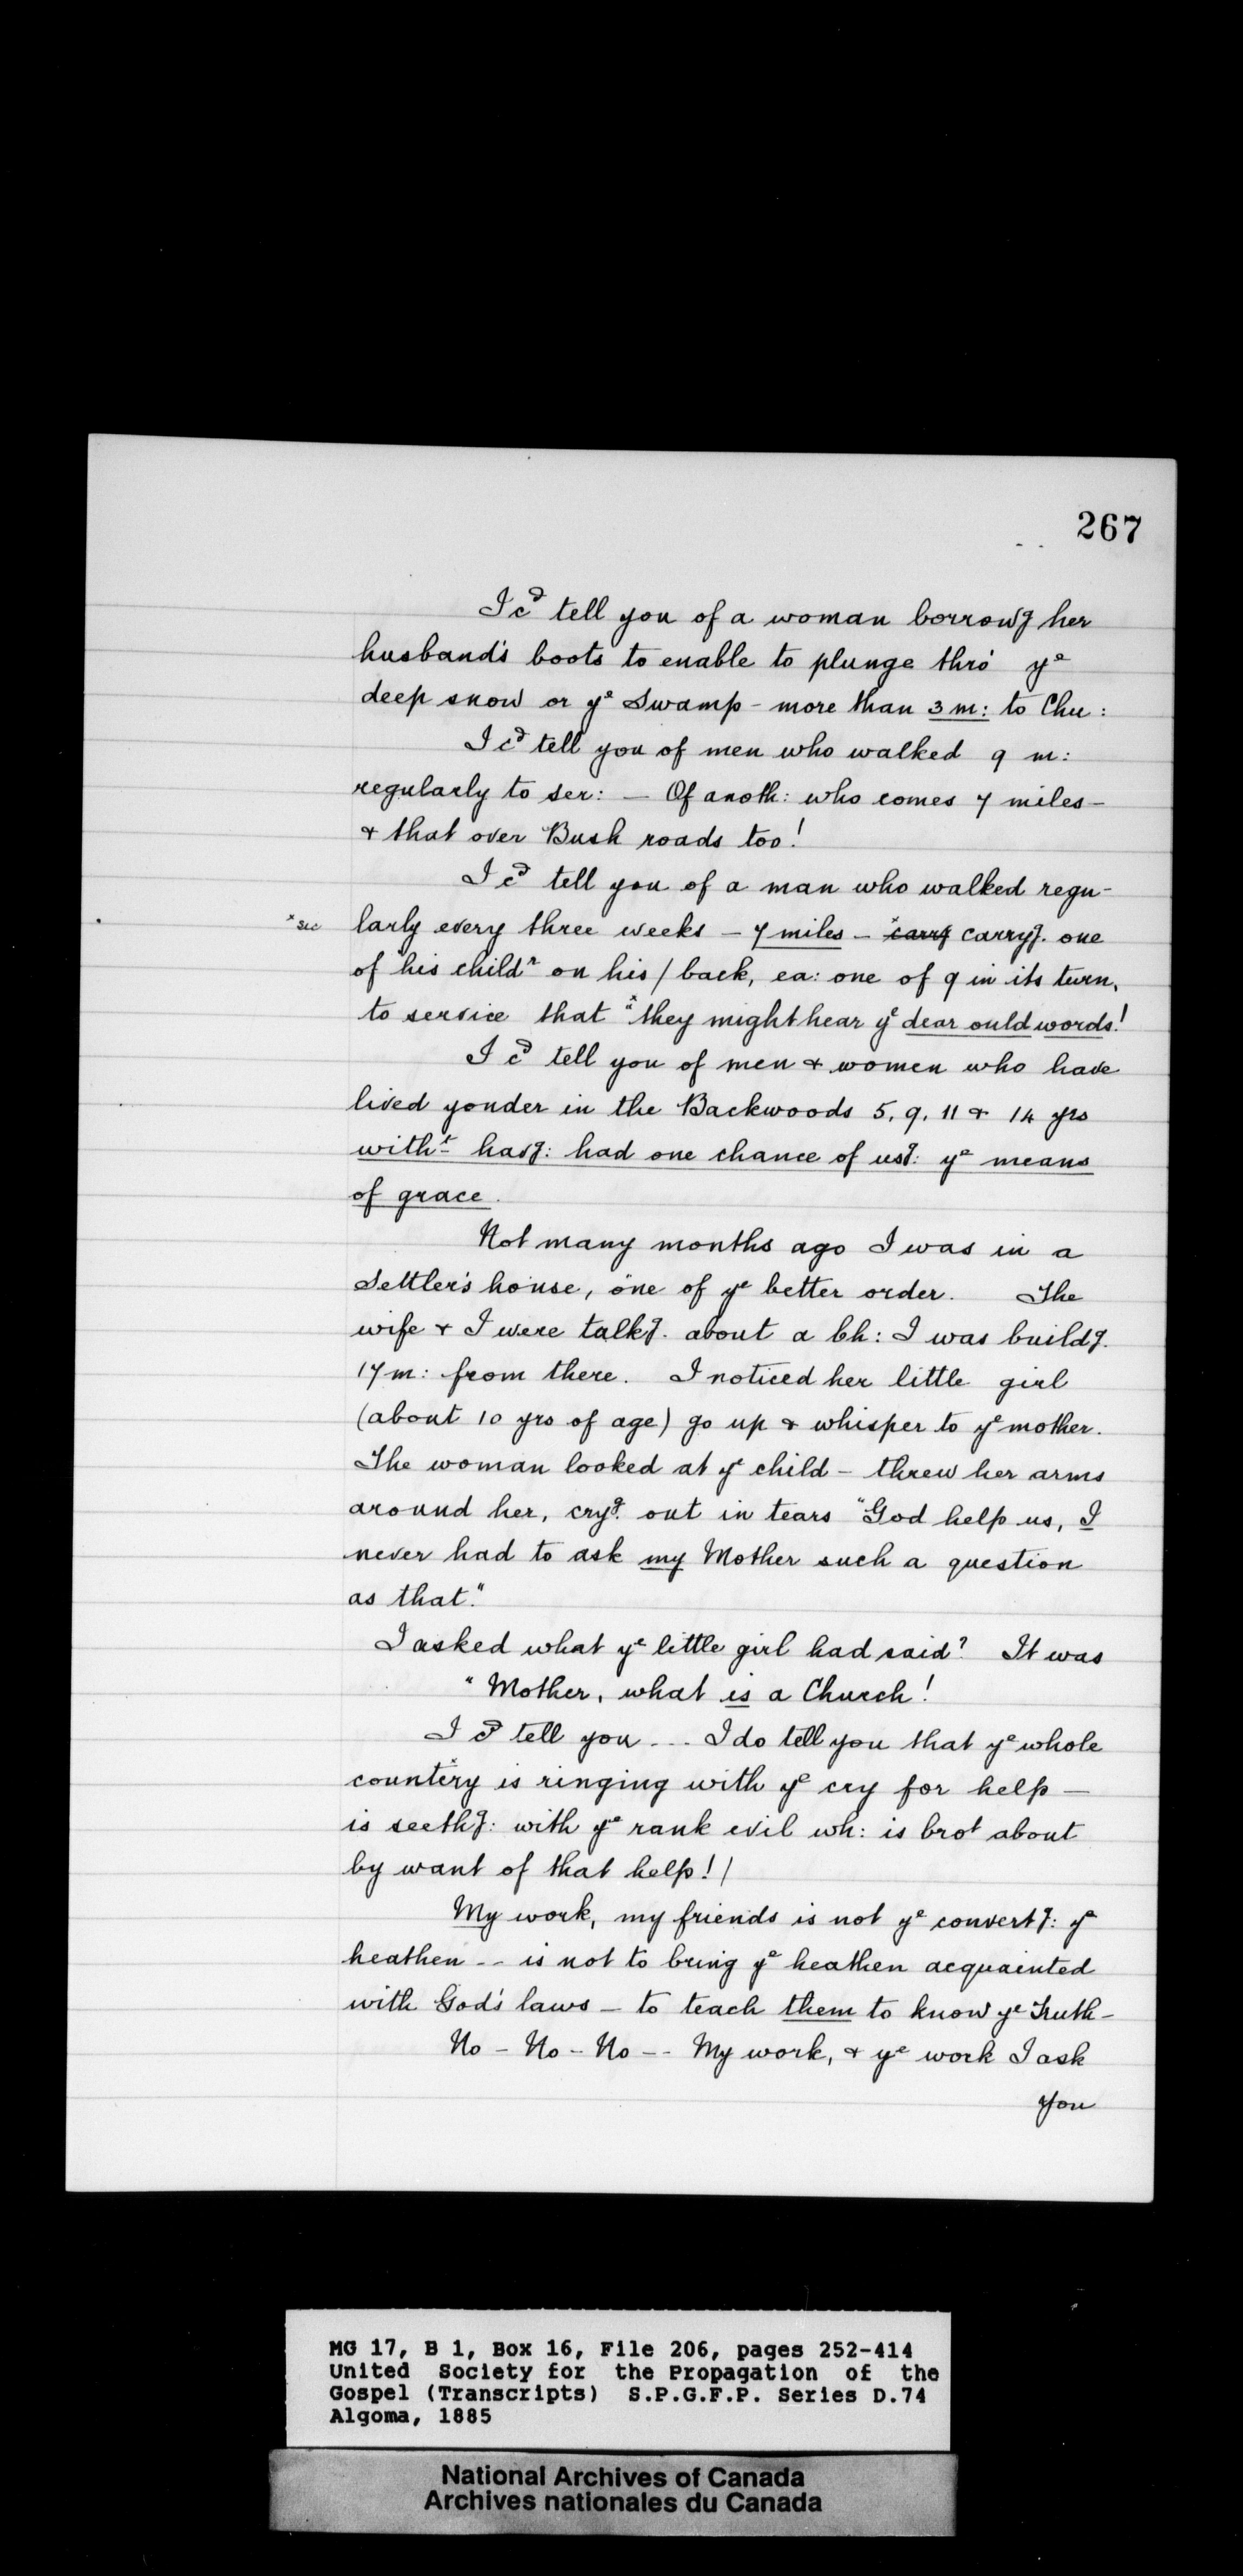 267
I cd tell you of a woman borrowg her
husband's boots to enable to plunge thro' ye
deep snow or ye Swamp - more than 3 m: to Chu:
I cd tell you of men who walked 9 m:
regularly to ser: — Of anoth: who comes 7 miles -
& that over Bush roads too!
I cd tell you of a man who walked regu-
*sic larly every three weeks - 7 miles - *carryg carryg. one
of his childn on his / back, ea: one of 9 in its turn,
to service that "they might hear ye dear ould words!
I cd tell you of men & women who have
lived yonder in the Backwoods 5, 9, 11 & 14 yrs
witht havg: had one chance of usg: ye means
of grace.
Not many months ago I was in a
Settler's house, one of ye better order. The
wife & I were talkg. about a bh: I was buildg.
17 m: from there. I noticed her little girl
(about 10 yrs of age) go up & whisper to ye mother.
The woman looked at ye child - threw her arms
around her, cryg. out in tears "God help us, I
never had to ask my Mother such a question
as that."
I asked what ye little girl had said? It was
"Mother, what is a Church!
I cd tell you... I do tell you that ye whole
country is ringing with ye cry for help —
is seethg: with ye rank evil wh: is brot about
by want of that help! /
My work, my friends is not ye convertg: ye
heathen -- is not to bring ye heathen acquainted
with God's laws - to teach them to know ye Truth -
No - No - No -- My work, & ye work I ask
you
MG 17, B 1, Box 16, File 206, pages 252-414
United Society for the Propagation of the
Gospel (Transcripts) S.P.G.F.P. Series D.74
Algoma, 1885
National Archives of Canada
Archives nationales du Canada